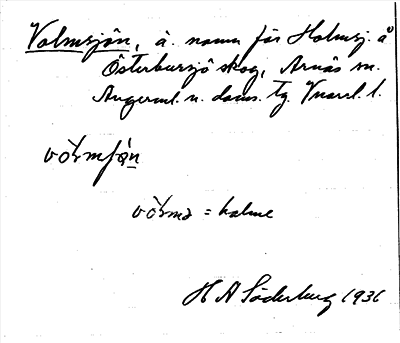 Valmsjön, ä. namn för Holmsj. å
Österbursjö skog, Arnäs sn.
Ångerml. n. doms. tg. Vnorrl. l.
vòrmʃǝ̀n
vòrmǝ = halme
H A Söderberg 1931